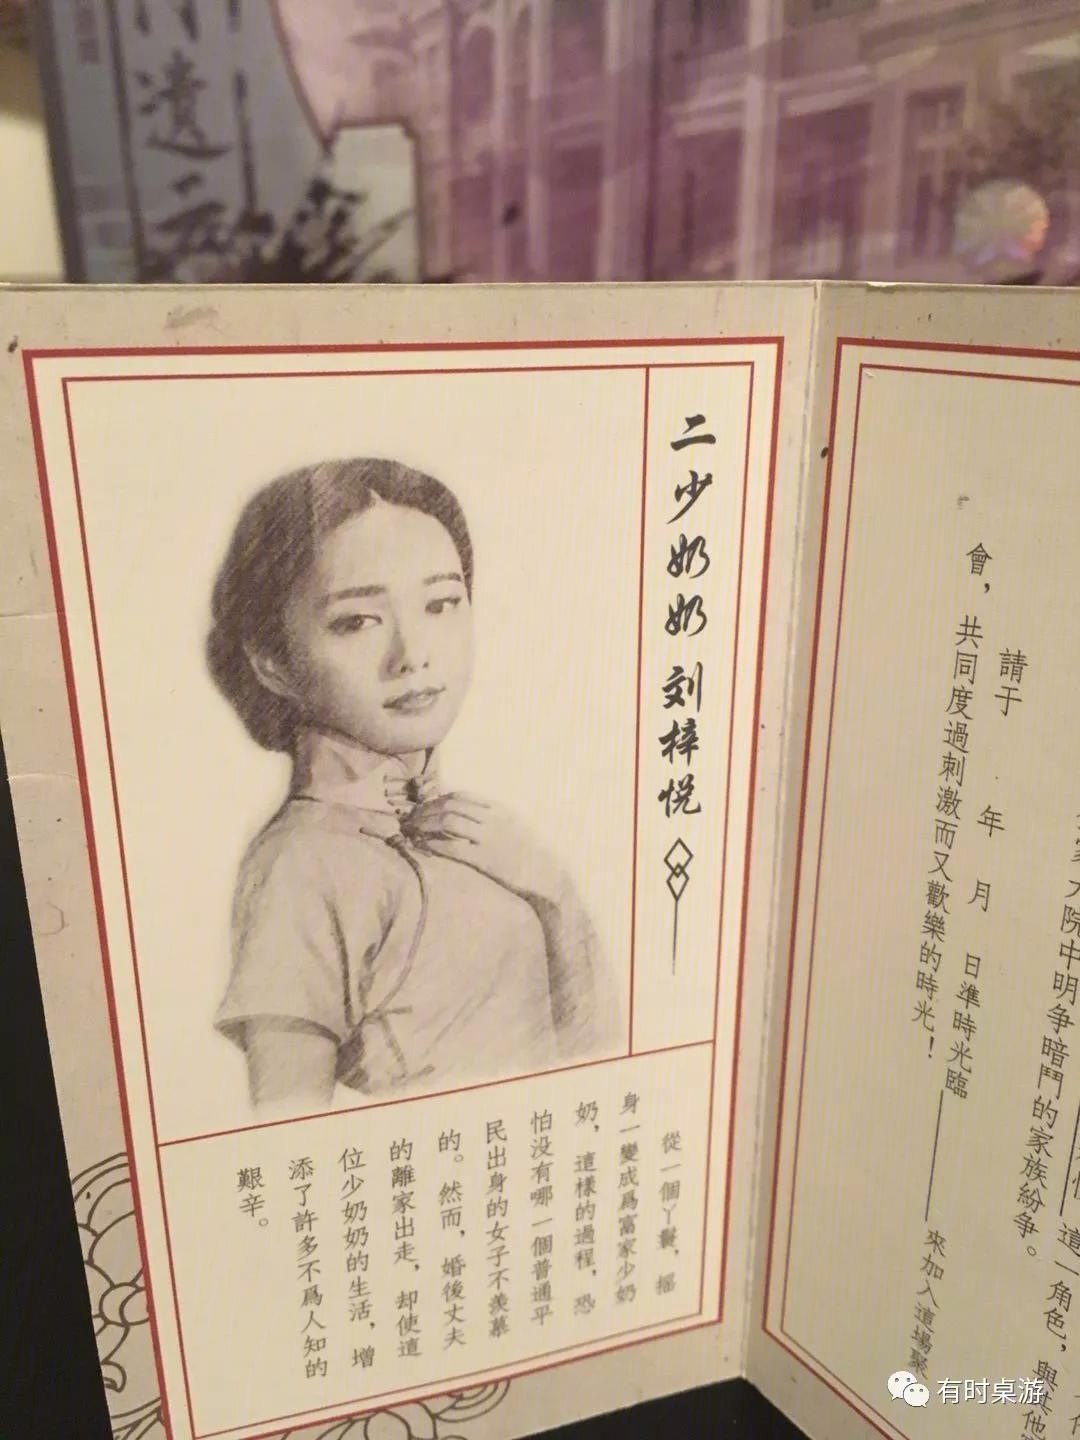 遺
二少奶奶 刘梓悦
從一個丫鬟，摇
身一變成爲富家少奶
奶，這樣的過程，恐
怕没有哪一個普通平
民出身的女子不羡慕
的。然而，婚後丈夫
的離家出走，却使這
位少奶奶的生活，增
添了許多不爲人知的
艱辛。
這一角色，與其他
大院中明争暗鬥的家族紛争。
請于 年 月 日準時光臨 來加入這場聚
會，共同度過刺激而又歡樂的時光！
有时桌游